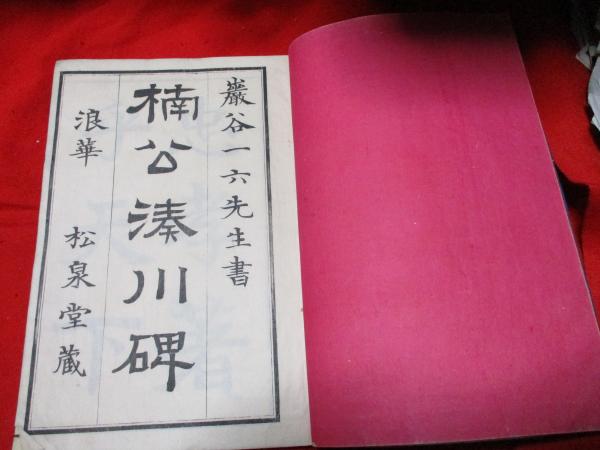 巖谷一六先生書
楠公湊川碑
浪華 松泉堂藏